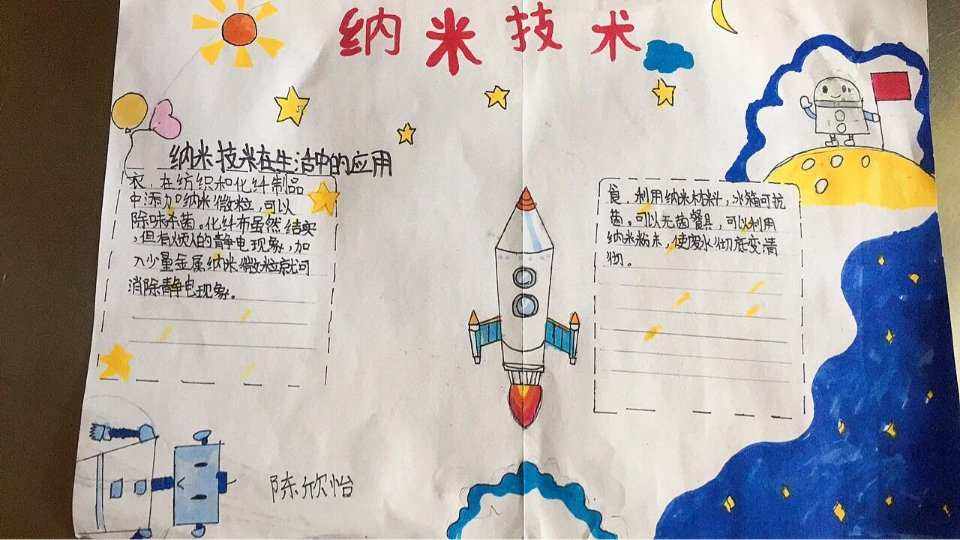 纳米技术
纳米技术在生活中的应用
衣,在纺织和化纤制品
中添加纳米微粒,可以
除味杀菌。化纤布虽然结实
,但有烦人的静电现象,加
入少量金属纳米微粒就可
消除静电现象。
食,利用纳米材料,冰箱可抗
菌。可以无菌餐具,可以利用
纳米粉末,使废水彻底变清
物。
陈欣怡